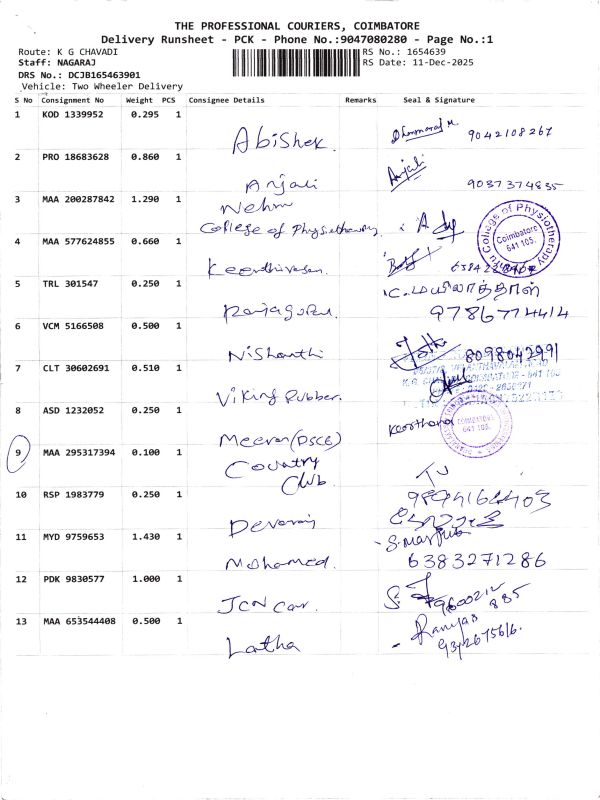 THE PROFESSIONAL COURIERS, COIMBATORE
Delivery Runsheet - PCK - Phone No.:9047080280 - Page No.:1
Route: K G CHAVADI RS No.: 1654639
Staff: NAGARAJ RS Date: 11-Dec-2025
DRS No.: DCJB165463901
Vehicle: Two Wheeler Delivery
S No Consignment No Weight PCS Consignee Details Remarks Seal & Signature
1 KOD 1339952 0.295 1
Abishek 9042108267
2 PRO 18683628 0.860 1
Anjali Anjali 9037374835
3 MAA 200287842 1.290 1
Nehru
College of Physiotherapy
College of Physiotherapy Coimbatore 641 105.
4 MAA 577624855 0.660 1
Keerthivasan
5 TRL 301547 0.250 1
C. மயிலாத்தாள்
Rajaguru 9786774414
6 VCM 5166508 0.500 1
Nishanthi 8098042991
7 CLT 30602691 0.510 1
Viking Rubber.
8 ASD 1232052 0.250 1
Meeran (DSCE) Keerthana
COIMBATORE 641 105.
9 MAA 295317394 0.100 1
Country
Club
10 RSP 1983779 0.250 1
9894164403
Devaraj
11 MYD 9759653 1.430 1
Mohamed 6383271286
12 PDK 9830577 1.000 1
JCN Car. 9600212
885
13 MAA 653544408 0.500 1
Latha